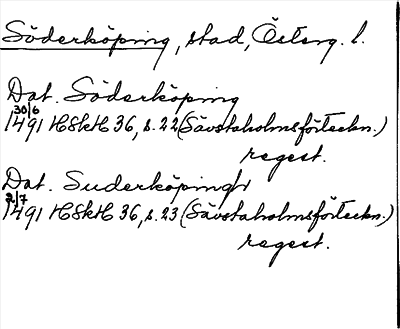 Söderköping, stad, Österg. l.
Dat. Söderköping
30/6
1491 HSkH 36, s. 22 (Sävstaholmsförteckn.)
regest.
Dat. Suderköpingh
2/7
1491 HSkH 36, s. 23 (Sävstaholmsförteckn.)
regest.